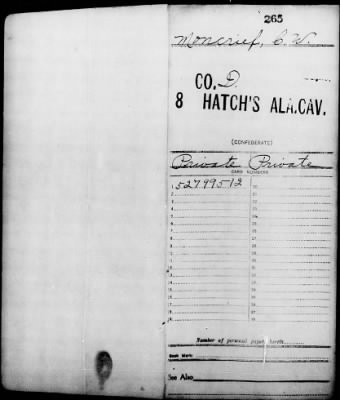 265
Moncrief, C. W.
CO. D.
8 HATCH'S ALA. CAV.
(CONFEDERATE)
Private Private
CARD NUMBERS
1 52799512
Number of personal papers herein
Book Mark:
See Also